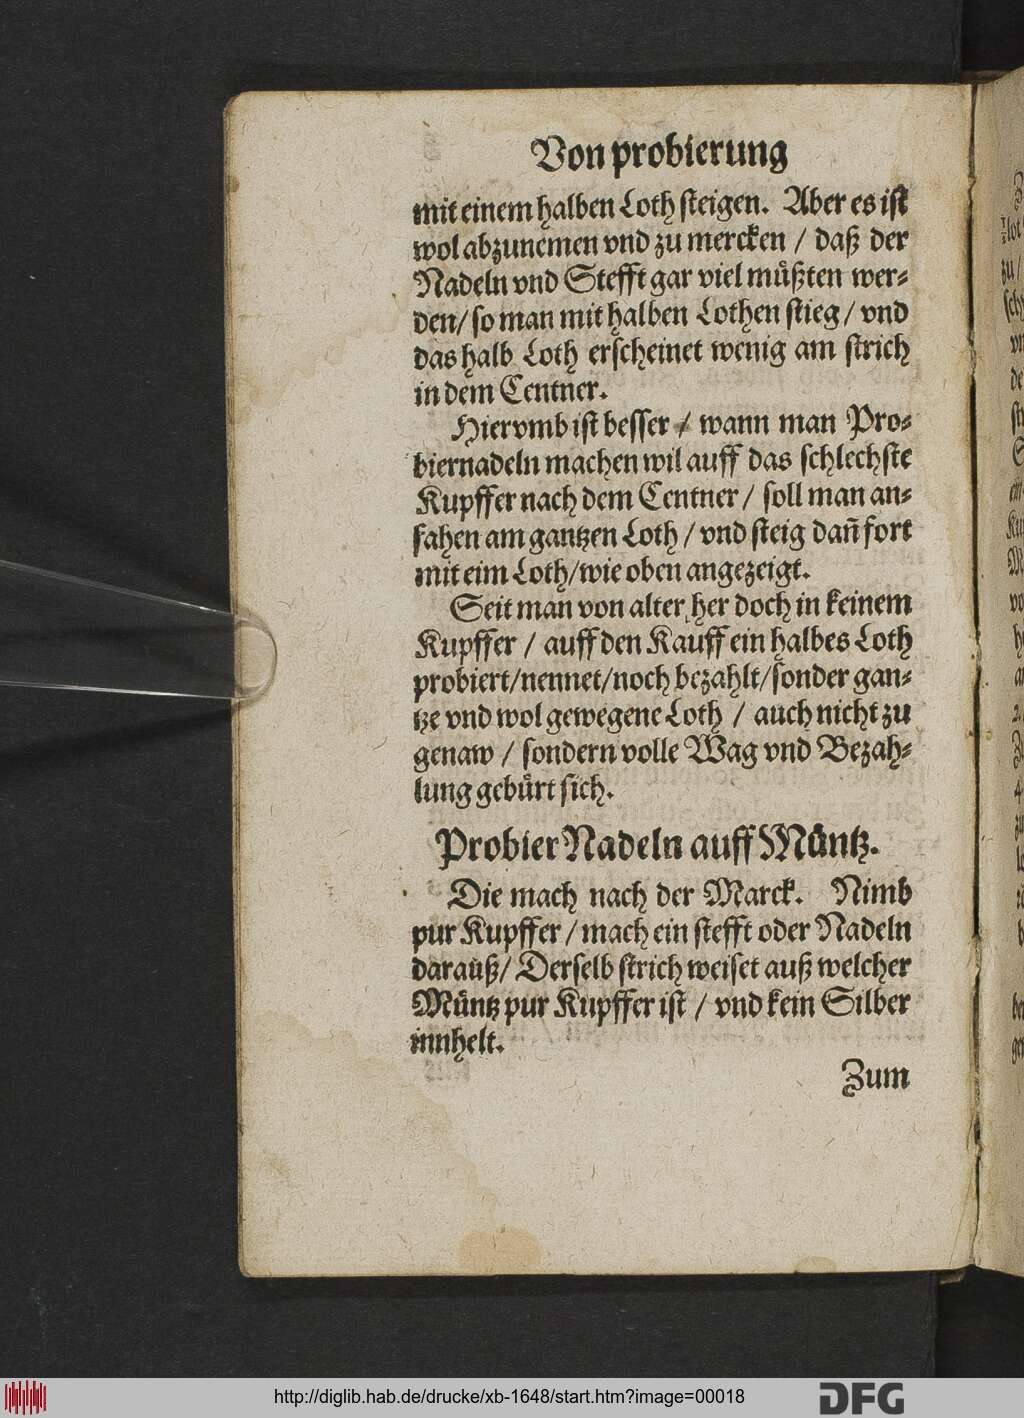 Von probierung
mit einem halben Loth steigen. Aber es ist
wol abzunemen vnd zu mercken / daß der
Nadeln vnd Stefft gar viel müßten wer⸗
den/ so man mit halben Lothen stieg / vnd
das halb Loth erscheinet wenig am strich
in dem Centner.
Hiervmb ist besser / wann man Pro⸗
biernadeln machen wil auff das schlechste
Kupffer nach dem Centner / soll man an⸗
fahen am gantzen Loth / vnd steig dañ fort
mit eim Loth/wie oben angezeigt.
Seit man von alter her doch in keinem
Kupffer / auff den Kauff ein halbes Loth
probiert/nennet/noch bezahlt/sonder gan⸗
tze vnd wol gewegene Loth / auch nicht zu
genaw / sondern volle Wag vnd Bezah⸗
lung gebürt sich.
Probier Nadeln auff Müntz.
Die mach nach der Marck. Nimb
pur Kupffer / mach ein stefft oder Nadeln
darauß/ Derselb strich weiset auß welcher
Müntz pur Kupffer ist / vnd kein Silber
innhelt.
Zum
http://diglib.hab.de/drucke/xb-1648/start.htm?image=00018
DFG